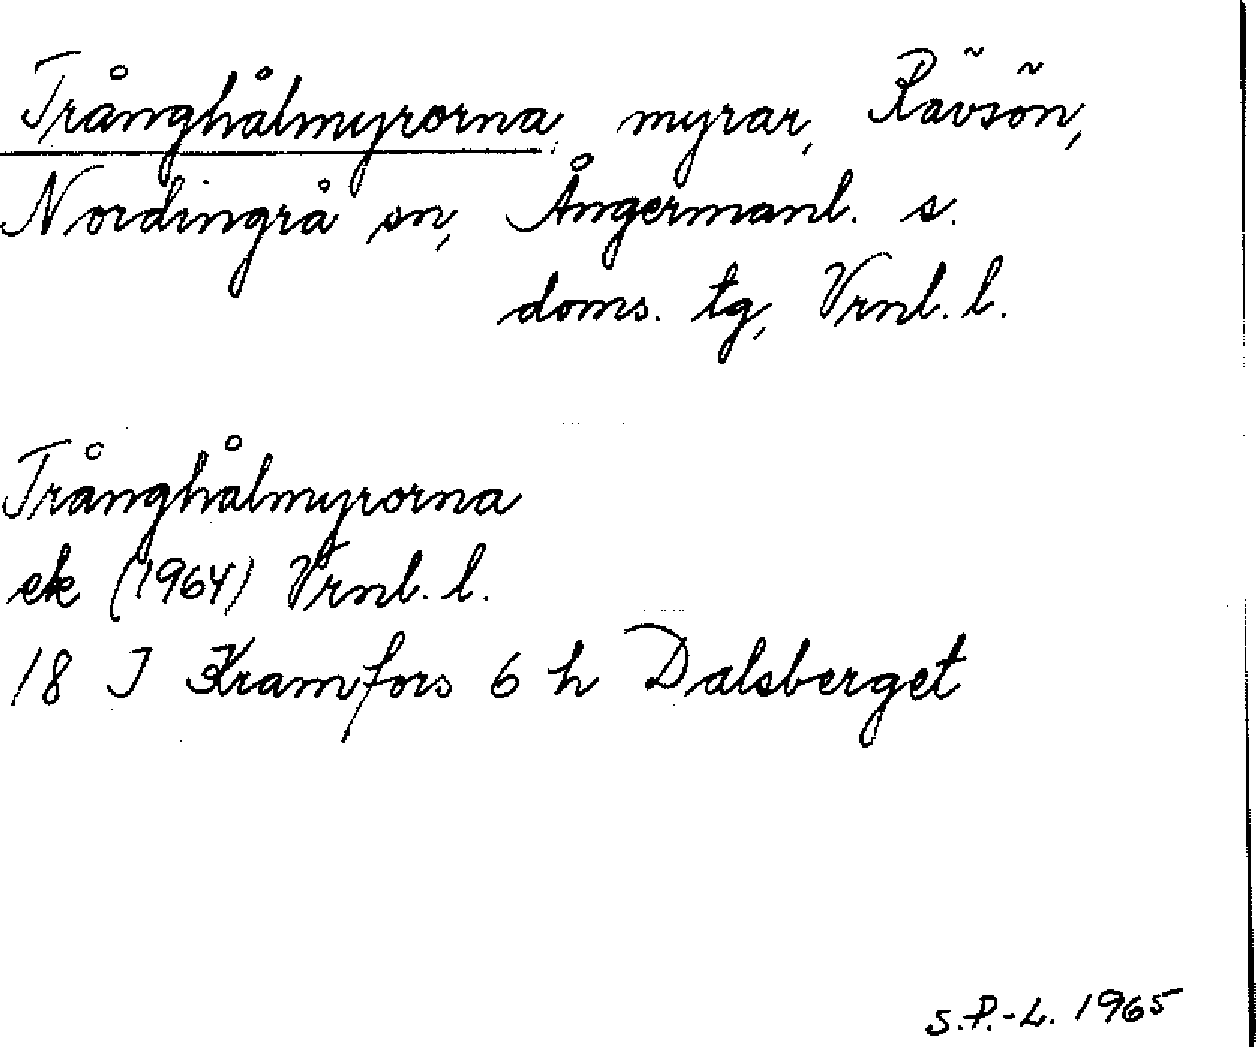 Trånghålmyrorna, myrar, Rävsön,
Nordingrå sn, Ångermanl. s.
doms. tg, Vrnl. l.
Trånghålmyrorna
ek (1964) Vrnl. l.
18 J Kramfors 6 h Dalsberget
S.P.-L. 1965